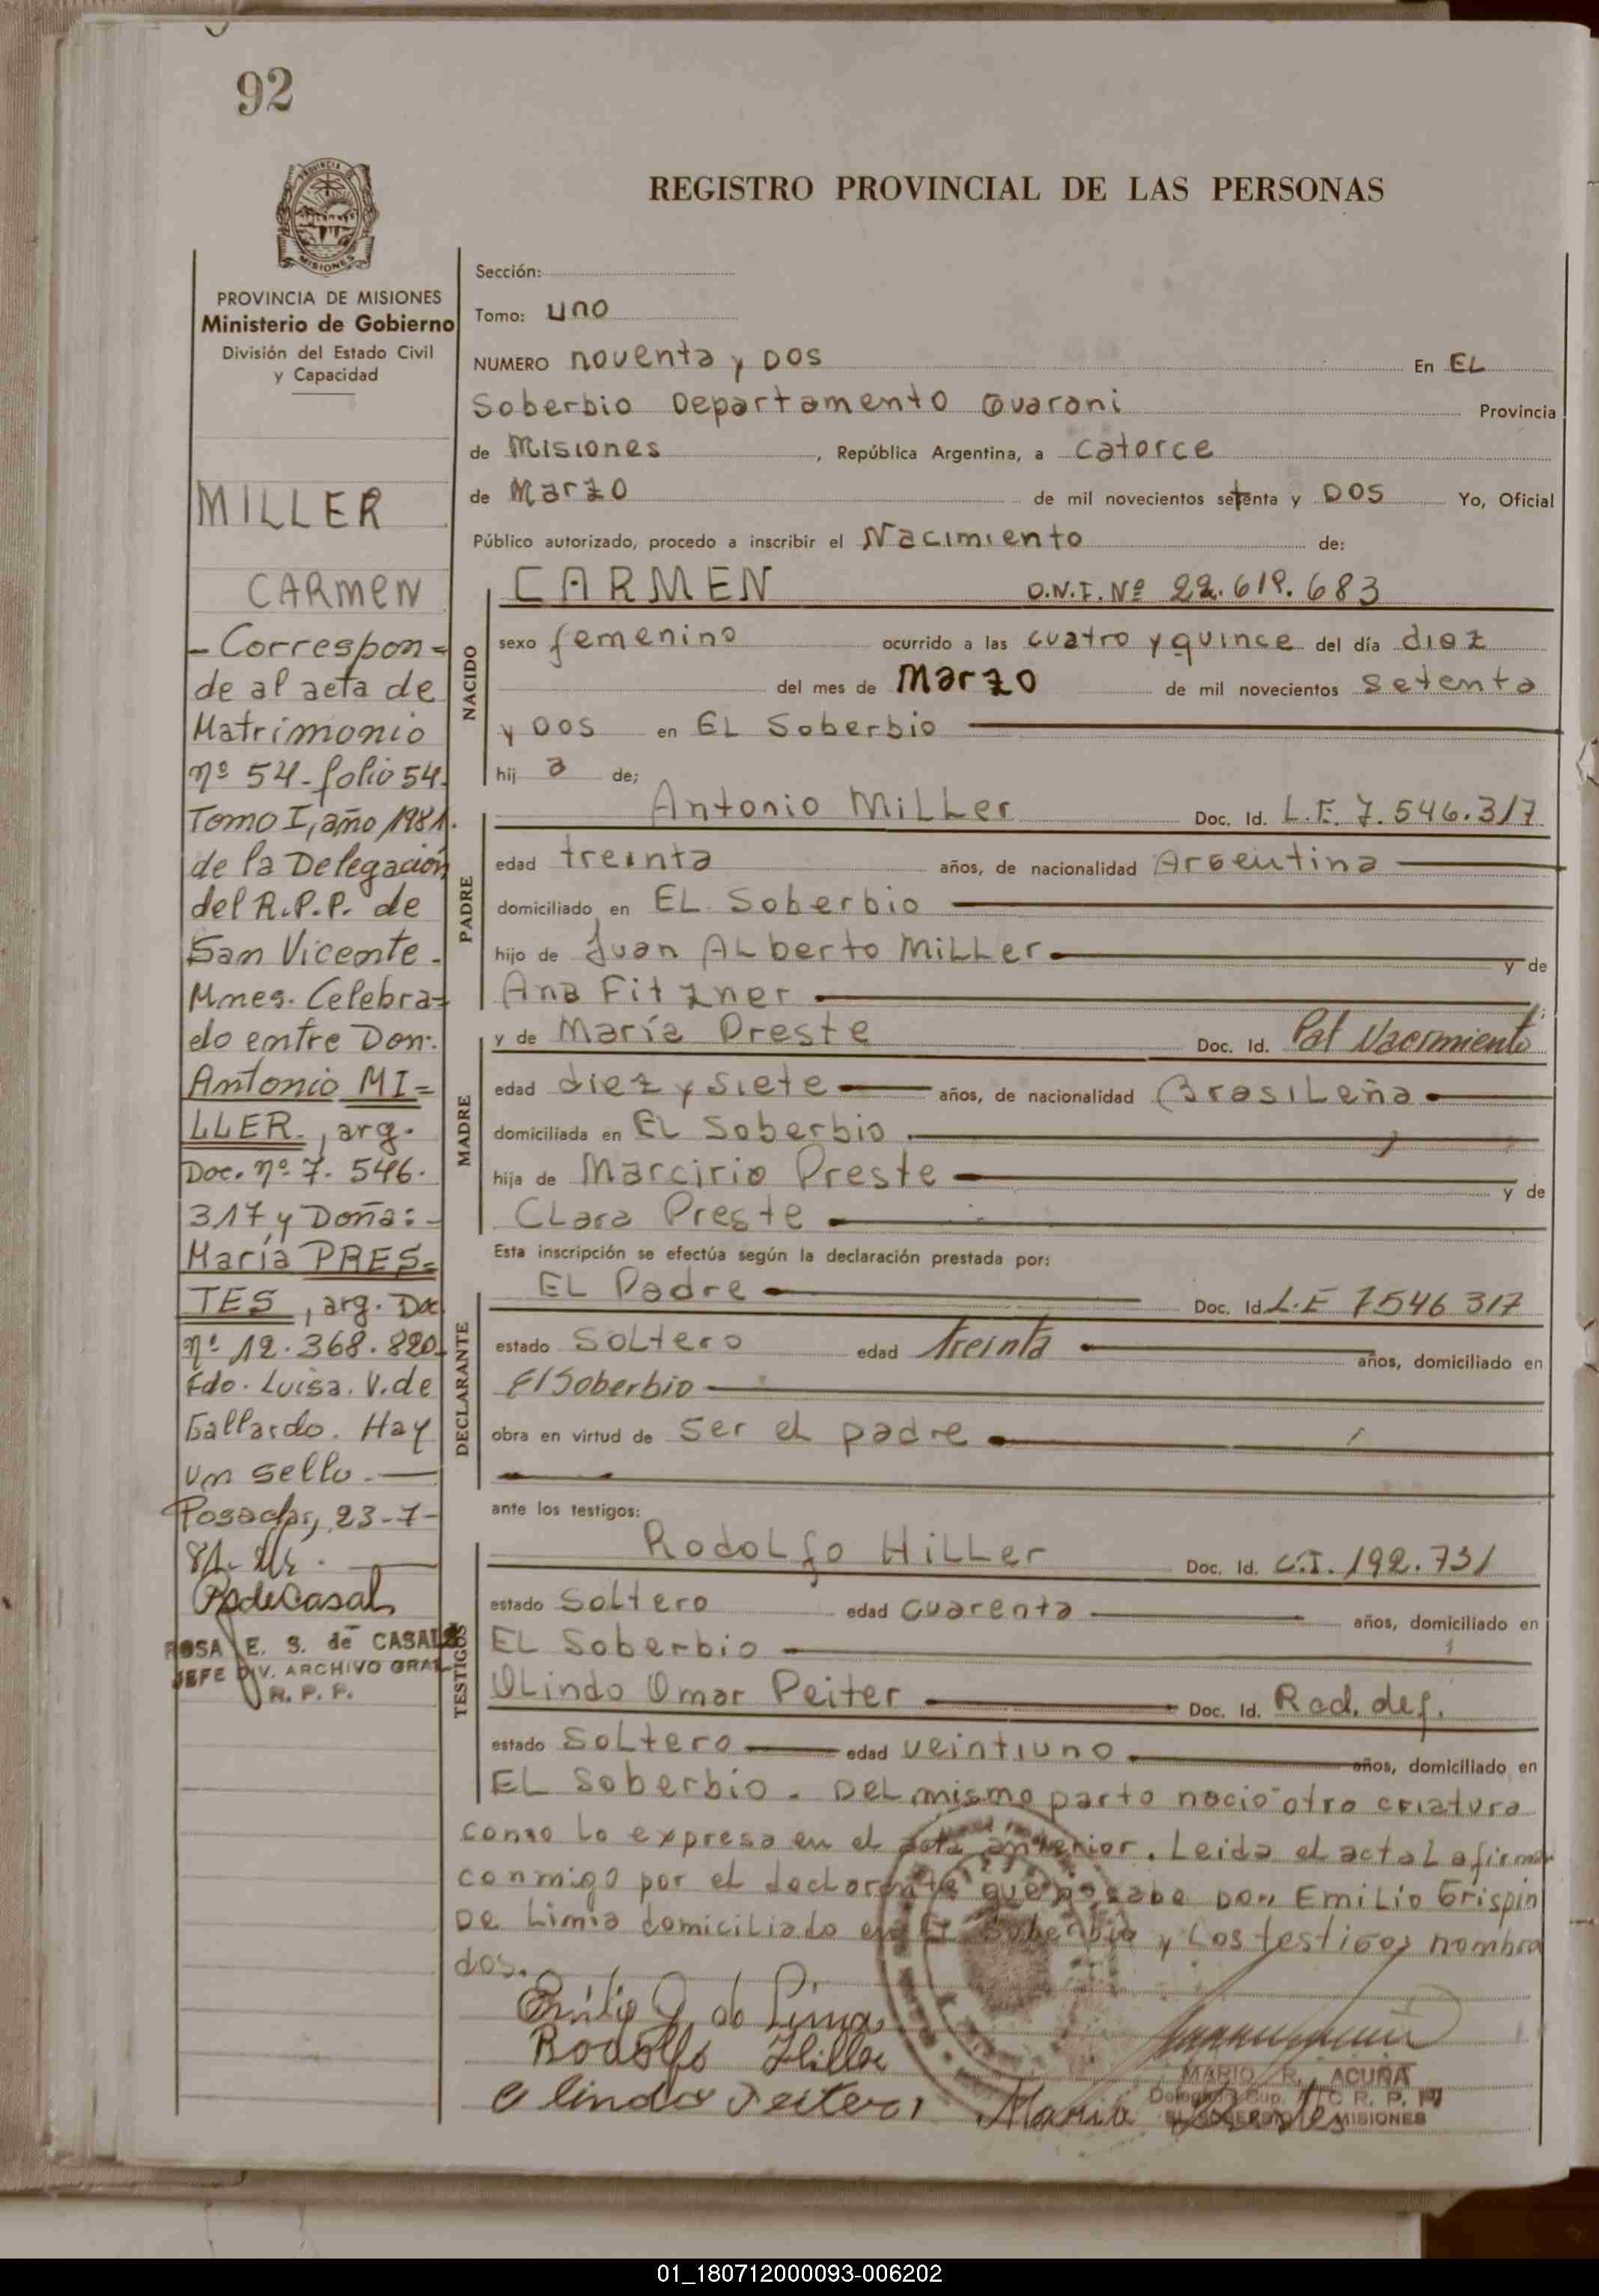 92
REGISTRO PROVINCIAL DE LAS PERSONAS
MISIONES
PROVINCIA DE MISIONES
Ministerio de Gobierno
División del Estado Civil
y Capacidad
MILLER
CARMEN
- Correspon=
de al acta de
Matrimonio
nº 54 - folio 54.
Tomo I, año 1981.
de la Delegación
del R.P.P. de
San Vicente -
Mnes. Celebra-
do entre Don:
Antonio MI=
LLER, arg.
Doc. nº 7. 546.
317 y Doña: -
María PRES=
TES, arg. Doc
nº 12.368.820.
Fdo. Luisa. V. de
Gallardo. Hay
un sello. —
Posadas, 23-7-
81-
ROSA E. S. de CASALS
JEFE DIV. ARCHIVO GRAL
R. P. P.
Sección:
Tomo: uno
NUMERO noventa y DOS En EL
Soberbio Departamento Guarani Provincia
de Misiones, República Argentina, a catorce
de Marzo de mil novecientos setenta y DOS Yo, Oficial
Público autorizado, procedo a inscribir el Nacimiento de:
NACIDO
CARMEN D.N.I. Nº 22.619.683
sexo femenino ocurrido a las cuatro y quince del día diez
del mes de Marzo de mil novecientos setenta
y DOS en EL Soberbio
hij a de;
PADRE
Antonio Miller Doc. Id. L.E. 7.546.317
edad treinta años, de nacionalidad Argentina
domiciliado en EL Soberbio
hijo de Juan Alberto Miller y de
Ana Fitzner
MADRE
y de María Preste Doc. Id. Pat Nacimiento
edad diez y siete años, de nacionalidad Brasileña
domiciliada en EL Soberbio
hija de Marcirio Preste y de
Clara Preste
Esta inscripción se efectúa según la declaración prestada por:
DECLARANTE
EL Padre Doc. Id. L.E 7546317
estado Soltero edad treinta años, domiciliado en
El Soberbio
obra en virtud de ser el padre
ante los testigos:
TESTIGOS
Rodolfo Hiller Doc. Id. C.I. 192.731
estado Soltero edad cuarenta años, domiciliado en
EL Soberbio
Olindo Omar Peiter Doc. Id. Rad. def.
estado Soltero edad veintiuno años, domiciliado en
EL Soberbio. Del mismo parto nacio otra criatura
como lo expresa en el acta anterior. Leida el acta la firma
conmigo por el declarante que no sabe Don Emilio Grispin
De Limia domiciliado en El Soberbio y los testigos nombra
dos.
Emilio G. de Lima
Rodolfo Hiller
Olindo Peiter María Prestes
MARIO R. ACUÑA
R. P. P.
EL SOBERBIO MISIONES
01_180712000093-006202